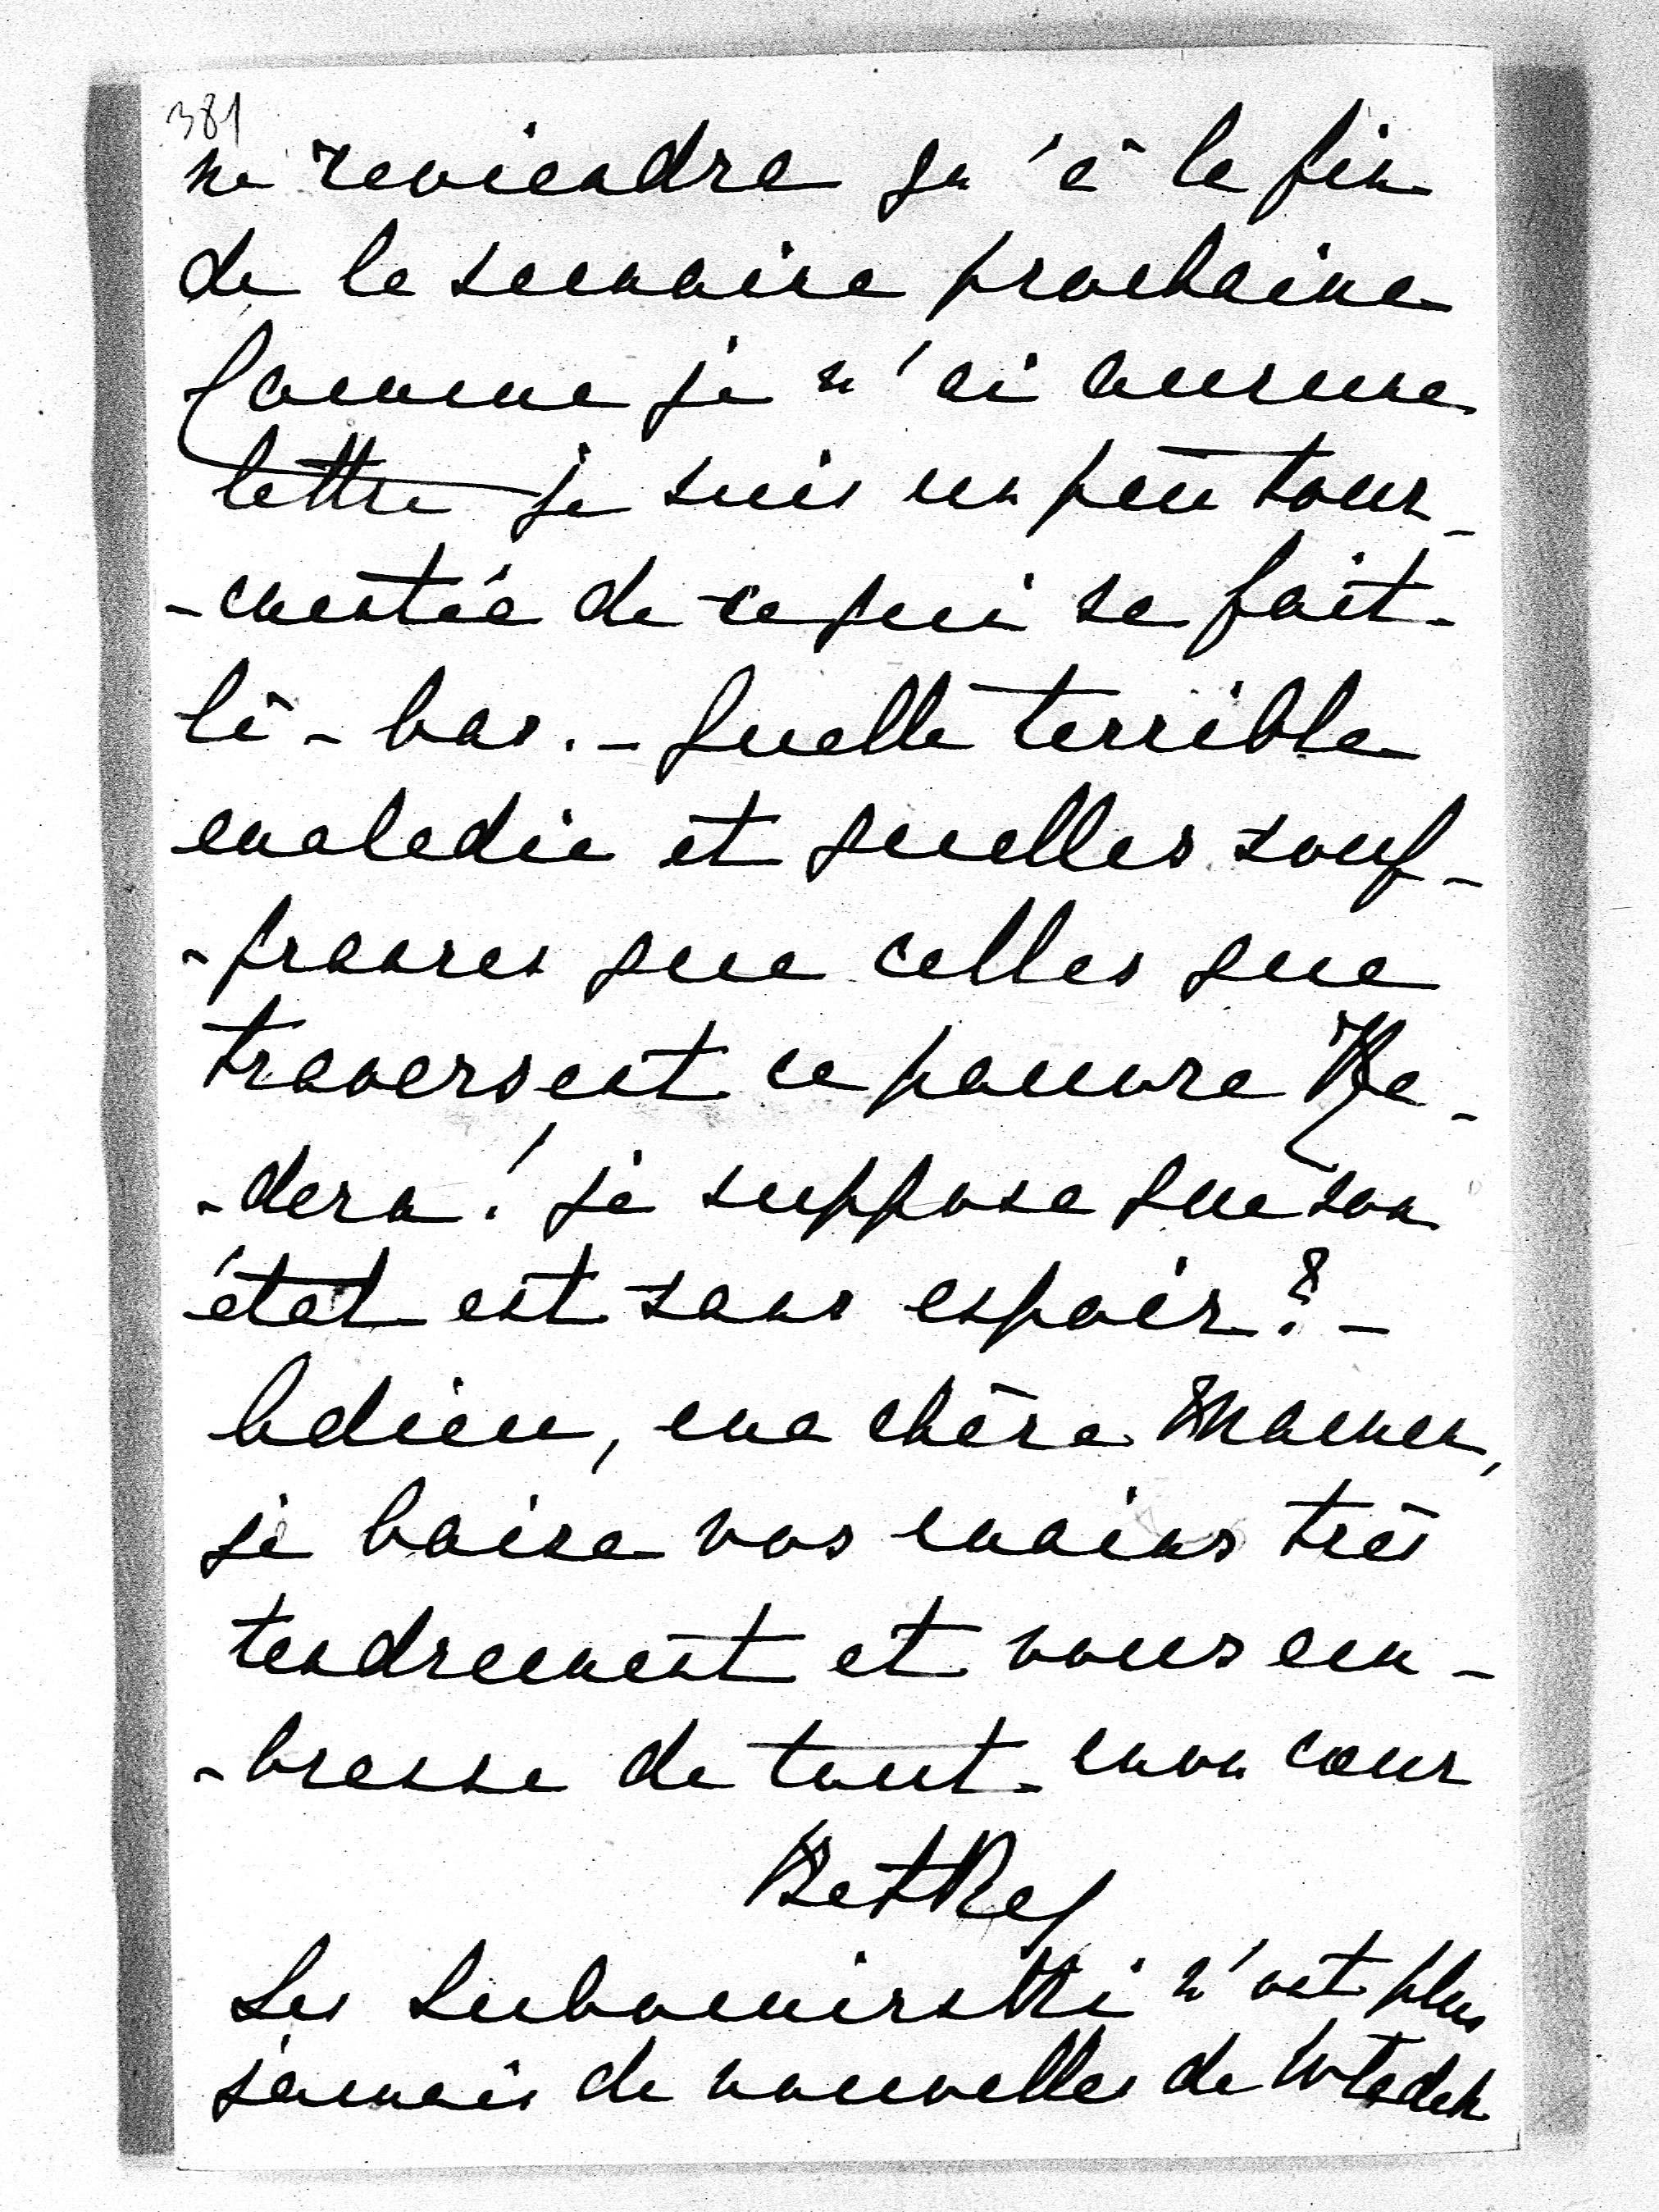 381
ne reviendra qu'à la fin
de la semaine prochaine
Comme je n'ai aucune
lettre je suis un peu tour-
-mentée de ce qui se fait
là-bas. - Quelle terrible
maladie et quelles souf-
-frances que celles que
traversent ce pauvre
! je suppose que son
état est sans espoir? -
Adieu, ma chère Maman,
je baise vos mains très
tendrement et vous em-
-brasse de tout mon cœur
Les Lubomirski n'ont plus
jamais de nouvelles de Wladek